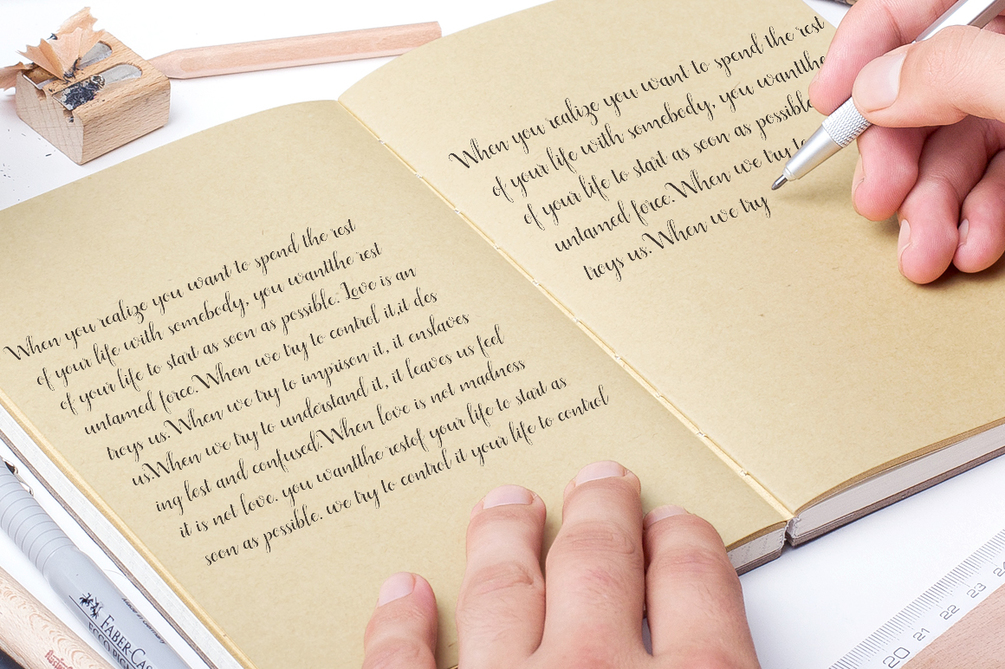 When you realize you want to spend the rest
of your life with somebody, you wantthe rest
of your life to start as soon as possible. Love is an
untamed force.When we try to control it,it des
troys us.When we try to imprison it, it enslaves
us.When we try to understand it, it leaves us feel
ing lost and confused.When love is not madness
it is not love. you wantthe restof your life to start as
soon as possible. we try to control it your life to control
When you realize you want to spend the rest
of your life with somebody, you wantthe
of your life to start as soon as possible
untamed force.When we try to
troys us.When we try
FABER-CAS
ECCO PIGM
20 21 22 23 24